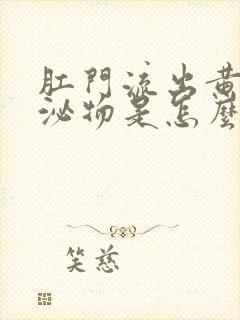 肛門流出黃
泌物是怎麼
笑慈